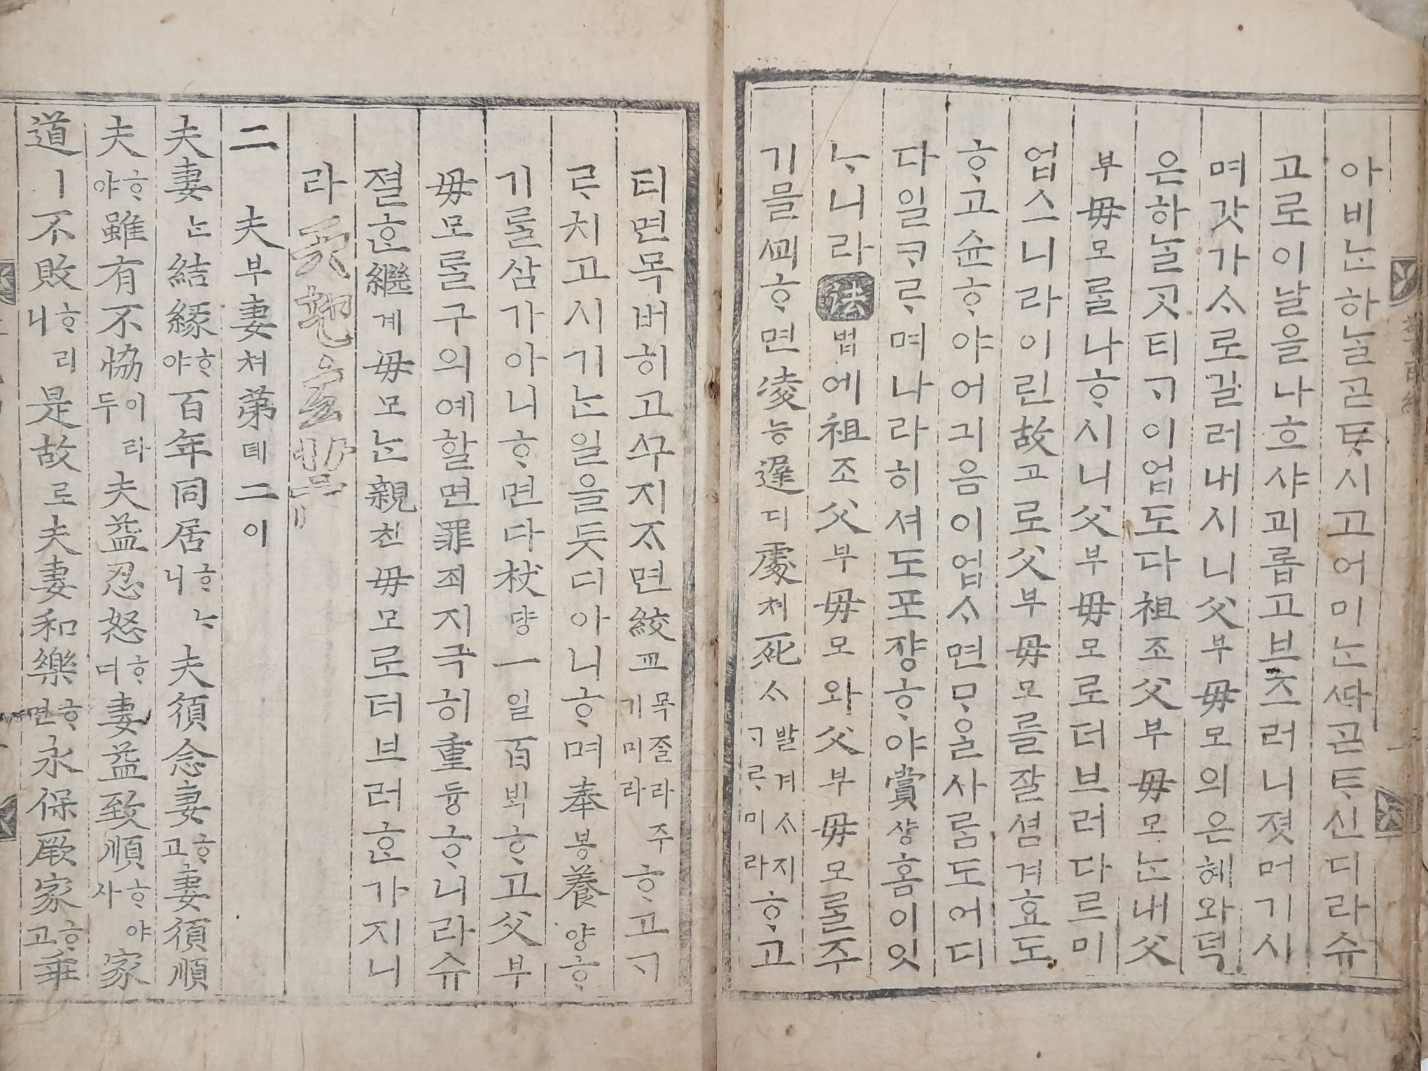 아비ᄂᆞᆫ하ᄂᆞᆯᄀᆞᆮᄐᆞ시고어미ᄂᆞᆫᄯᅡᄀᆞᆮᄐᆞ신디라슈
고로이날을나ᄒᆞ샤괴롭고브즈러니졋머기시
며갓가ᄉᆞ로길러내시니父부母모의은혜와덕
은하ᄂᆞᆯᄀᆞᆺ티ᄀᆞ이업도다祖조父부母모ᄂᆞᆫ내父
부母모ᄅᆞᆯ나ᄒᆞ시니父부母모로더브러다르미
업스니라이린故고로父부母모를잘셤겨효도
ᄒᆞ고슌ᄒᆞ야어긔음이업ᄉᆞ면ᄆᆞᄋᆞᆯ사ᄅᆞᆷ도어디
다일ᄏᆞᄅᆞ며나라히셔도포쟝ᄒᆞ야賞샹홈이잇
ᄂᆞ니라法법에祖조父부母모와父부母모ᄅᆞᆯ주
기믈ᄭᅬᄒᆞ면凌능遲디處쳐死ᄉᆞ발겨ᄉᆞ지ᄀᆞᄅᆞ미라ᄒᆞ고
티면목버히고ᄭᅮ지ᄌᆞ면絞교목졸라주기미라ᄒᆞ고ᄀᆞ
ᄅᆞ치고시기ᄂᆞᆫ일을듯디아니ᄒᆞ며奉봉養양ᄒᆞ
기ᄅᆞᆯ삼가아니ᄒᆞ면다杖댱一일百ᄇᆡᆨᄒᆞ고父부
母모ᄅᆞᆯ구의예할면罪죄지극히重듕ᄒᆞ니라슈
졀ᄒᆞᆫ繼계母모ᄂᆞᆫ親친母모로더브러ᄒᆞᆫ가지니
라
二 夫부妻쳐第뎨二이
夫妻ᄂᆞᆫ結緣ᄒᆞ야百年同居ᄒᆞᄂᆞ니夫須念妻ᄒᆞ고妻須順
夫ᄒᆞ야雖有不恊이라두夫益忍怒ᄒᆞ며妻益致順ᄒᆞ야사家
道ㅣ不敗ᄒᆞ리니是故로夫妻和樂ᄒᆞ면永保厥家ᄒᆞ고乖